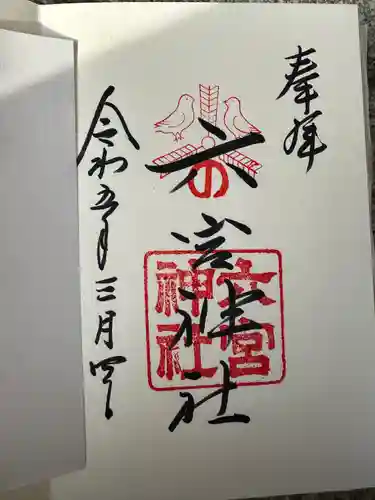 奉拝
六宮神社
の
六宮
神社
令和五年三月四日